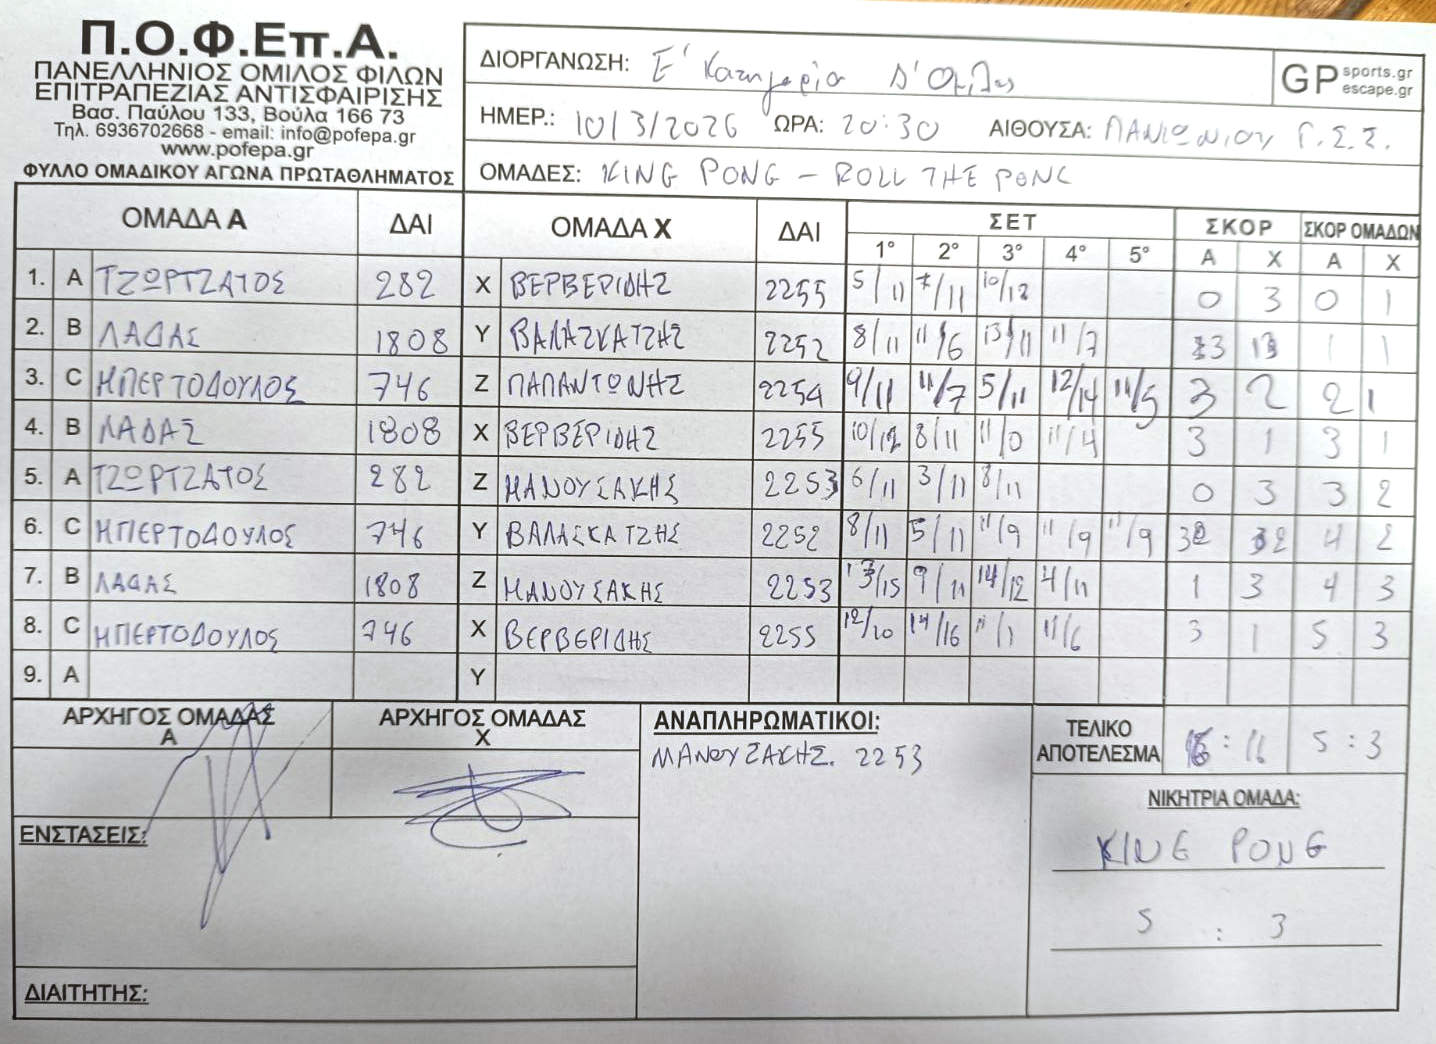 Π.Ο.Φ.Επ.Α.
ΠΑΝΕΛΛΗΝΙΟΣ ΟΜΙΛΟΣ ΦΙΛΩΝ
ΕΠΙΤΡΑΠΕΖΙΑΣ ΑΝΤΙΣΦΑΙΡΙΣΗΣ
Βασ. Παύλου 133, Βούλα 166 73
Τηλ. 6936702668 - email: info@pofepa.gr
www.pofepa.gr
ΦΥΛΛΟ ΟΜΑΔΙΚΟΥ ΑΓΩΝΑ ΠΡΩΤΑΘΛΗΜΑΤΟΣ
ΔΙΟΡΓΑΝΩΣΗ: Ε' Κατηγορία Δ' Όμιλος
GP sports.gr escape.gr
ΗΜΕΡ.: 10/3/2026 ΩΡΑ: 20:30 ΑΙΘΟΥΣΑ: ΠΑΝΙΩΝΙΟΥ Γ.Σ.Σ.
ΟΜΑΔΕΣ: KING PONG - ROLL THE PONG
ΟΜΑΔΑ Α ΔΑΙ ΟΜΑΔΑ Χ ΔΑΙ ΣΕΤ ΣΚΟΡ ΣΚΟΡ ΟΜΑΔΩΝ
1° 2° 3° 4° 5° Α Χ Α Χ
1. A ΤΖΩΡΤΖΑΤΟΣ 282 X ΒΕΡΒΕΡΙΔΗΣ 2255 5/11 7/11 10/12 0 3 0 1
2. B ΛΑΔΑΣ 1808 Y ΒΑΛΑΣΚΑΤΖΗΣ 2252 8/11 11/6 13/11 11/7 3 1 1 1
3. C ΜΠΕΡΤΟΔΟΥΛΟΣ 746 Z ΠΑΠΑΝΤΩΝΗΣ 2254 9/11 11/7 5/11 12/14 11/5 3 2 2 1
4. B ΛΑΔΑΣ 1808 X ΒΕΡΒΕΡΙΔΗΣ 2255 10/12 8/11 11/0 11/4 3 1 3 1
5. A ΤΖΩΡΤΖΑΤΟΣ 282 Z ΜΑΝΟΥΣΑΚΗΣ 2253 6/11 3/11 8/11 0 3 3 2
6. C ΜΠΕΡΤΟΔΟΥΛΟΣ 746 Y ΒΑΛΑΣΚΑΤΖΗΣ 2252 8/11 5/11 11/9 11/9 11/9 3 2 4 2
7. B ΛΑΔΑΣ 1808 Z ΜΑΝΟΥΣΑΚΗΣ 2253 13/15 9/11 14/12 4/11 1 3 4 3
8. C ΜΠΕΡΤΟΔΟΥΛΟΣ 746 X ΒΕΡΒΕΡΙΔΗΣ 2255 12/10 14/16 11/1 11/6 3 1 5 3
9. A Y
ΑΡΧΗΓΟΣ ΟΜΑΔΑΣ Α
ΑΡΧΗΓΟΣ ΟΜΑΔΑΣ Χ
ΑΝΑΠΛΗΡΩΜΑΤΙΚΟΙ:
ΜΑΝΟΥΣΑΚΗΣ. 2253
ΤΕΛΙΚΟ ΑΠΟΤΕΛΕΣΜΑ 16 : 16 5 : 3
ΝΙΚΗΤΡΙΑ ΟΜΑΔΑ:
KING PONG
5 : 3
ΕΝΣΤΑΣΕΙΣ:
ΔΙΑΙΤΗΤΗΣ: